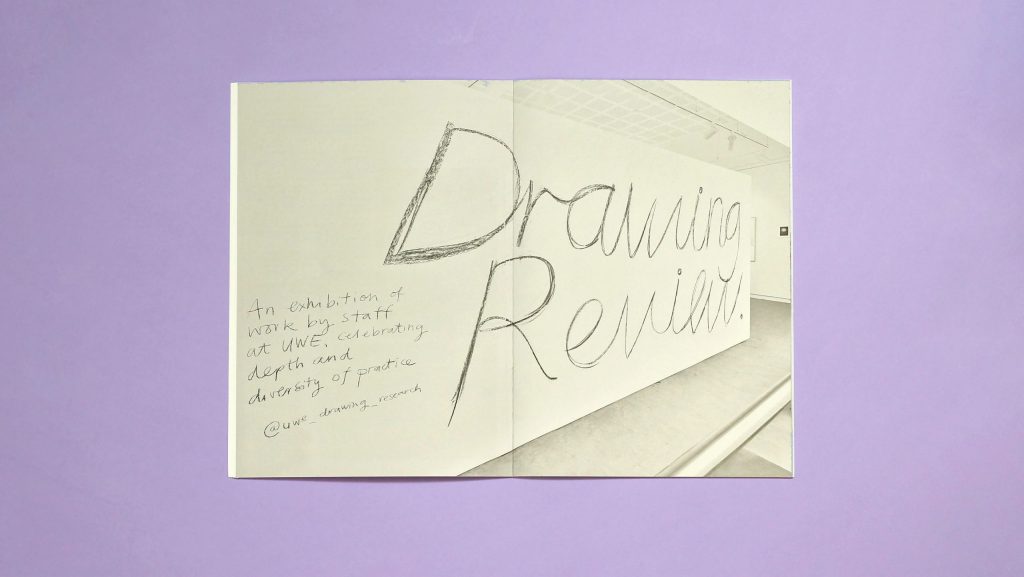 Drawing
Review.
An exhibition of
work by staff
at UWE. celebrating
depth and
diversity of practice
@uwe_drawing_research